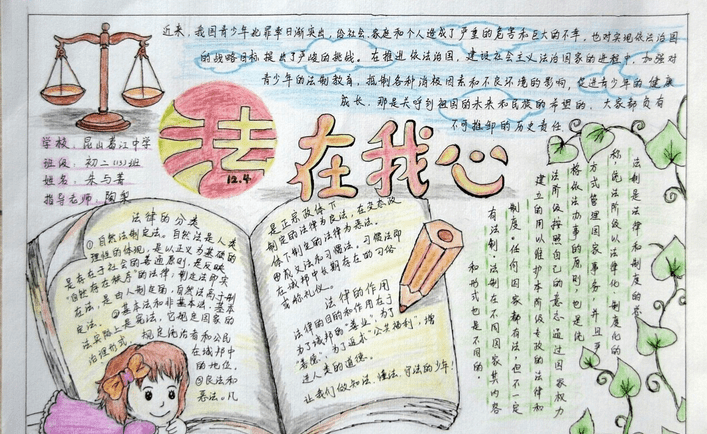 近来，我国青少年犯罪率日渐突出，给社会、家庭和个人造成了严重的危害和巨大的不幸，也对实现依法治国
的战略目标提出了严峻的挑战。在推进依法治国，建设社会主义法治国家的进程中，加强对
青少年的法制教育，抵制各种消极因素和不良环境的影响，促进青少年的健康
成长，那是关呼到祖国的未来和民族的希望的，大家都负有
不可推卸的历史责任。
法在我心
12.4
学校：昆山葛江中学
班级：初二(13)班
姓名：朱与菁
指导老师：陶梨
法律的分类
①自然法制定法。自然法是人类
理性的体现，是以正义为基础的
是存在于社会的普通原则，是反映
"自然存在秩序"的法律，制定法即实
在法，是由人制定的，自然法高于制
定法。②基本法和非基本法。基本
法实际上是宪法，它规定国家的
治理形式。规定统治者和公民
在城邦中
的地位。
③良法和
恶法。凡
是正宗政体下
制定的法律为良法，在变态政
体下制定的法律为恶法。
④成文法和习惯法，习惯法即
在城邦中长期存在的习俗
或俗礼仪。
法律的作用
法律的目的和作用在于
为了城邦的"善业"，为了
"善德"，为了追求"公共福利"，增
进人类的道德。
让我们做知法、懂法、守法的少年！
法制是法律和制度的总
称，统治阶级以法律化、制度化的
方式管理国家事务，并且严
将依法办事的原则，也是统
治阶级按照自己的意志通过国家权力
建立的用以维护本阶级专政的法律和
制度，任何国家都有法，但不一定
有法制，法制在不同国家其内容
和形式也是不同的。